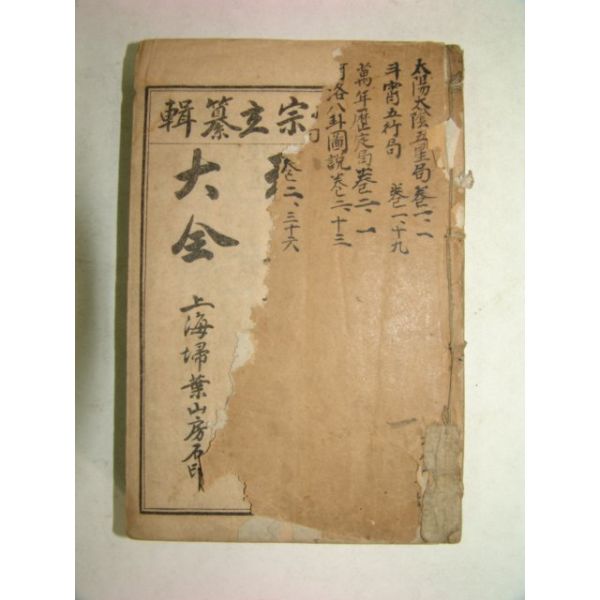 太陽太陰五星局 卷一、一
斗宵五行局 卷一、十九
萬年歷定局 卷二、一
洛八卦圖說 卷二、十三
卷二、三十六
宗立纂輯
大全
上海埽葉山房石印
一